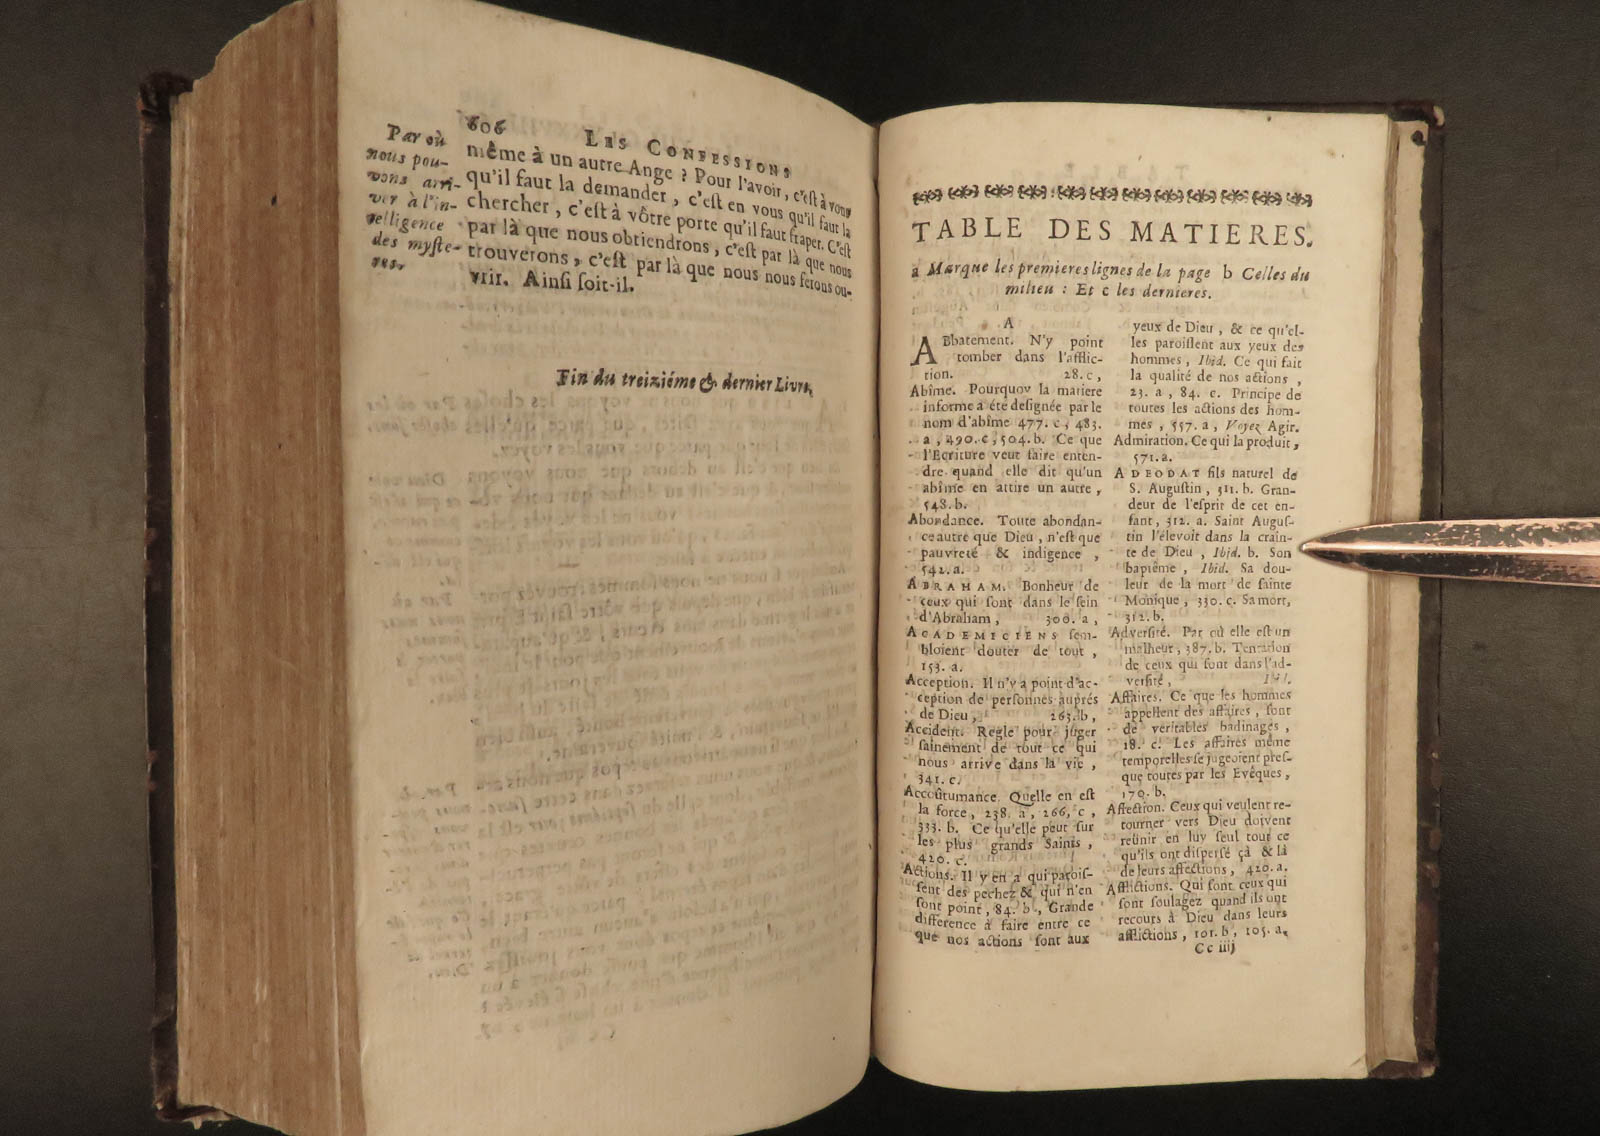 606 LES CONFESSIONS
Par où
nous pou-
vons arri-
ver à l'in-
telligence
des myste-
res.
même à un autre Ange ? Pour l'avoir, c'est à vous
qu'il faut la demander, c'est en vous qu'il faut la
chercher, c'est à vôtre porte qu'il faut fraper. C'est
par là que nous obtiendrons, c'est par là que nous
trouverons, c'est par là que nous nous serons ou-
vrir. Ainsi soit-il.
Fin du treiziéme & dernier Livre.
TABLE DES MATIERES.
a Marque les premieres lignes de la page b Celles du
milieu : Et c les dernieres.
A
ABbatement. N'y point
tomber dans l'afflic-
tion. 28. c,
Abîme. Pourquoy la matiere
informe a été designée par le
nom d'abîme 477. c, 483.
a, 490. c, 504. b. Ce que
l'Ecriture veut faire enten-
dre quand elle dit qu'un
abîme en attire un autre,
548. b.
Abondance. Toute abondan-
ce autre que Dieu, n'est que
pauvreté & indigence,
542. a.
ABRAHAM. Bonheur de
ceux qui sont dans le sein
d'Abraham, 300. a,
ACADEMICIENS sem-
bloient douter de tout,
153. a.
Acception. Il n'y a point d'ac-
ception de personnes auprés
de Dieu, 263. b,
Accident. Regle pour juger
sainement de tout ce qui
nous arrive dans la vie,
341. c.
Accoûtumance. Quelle en est
la force, 238. a, 266. c,
333. b. Ce qu'elle peut sur
les plus grands Saints,
420. c.
Actions. Il y en a qui parois-
sent des pechez & qui n'en
sont point, 84. b, Grande
difference à faire entre ce
que nos actions sont aux
yeux de Dieu, & ce qu'el-
les paroissent aux yeux des
hommes, Ibid. Ce qui fait
la qualité de nos actions,
23. a, 84. c. Principe de
toutes les actions des hom-
mes, 557. a, Voyez Agir.
Admiration. Ce qui la produit,
571. a.
ADEODAT fils naturel de
S. Augustin, 311. b. Gran-
deur de l'esprit de cet en-
fant, 312. a. Saint Augus-
tin l'élevoit dans la crain-
te de Dieu, Ibid. b. Son
baptême, Ibid. Sa dou-
leur de la mort de sainte
Monique, 330. c. Sa mort,
312. b.
Adversité. Par où elle est un
malheur, 387. b. Tentation
de ceux qui sont dans l'ad-
versité, Ibid.
Affaires. Ce que les hommes
appellent des affaires, sont
de veritables badinages,
18. c. Les affaires même
temporelles se jugeoient pres-
que toutes par les Evêques,
170. b.
Affection. Ceux qui veulent re-
tourner vers Dieu doivent
reünir en luy seul tout ce
qu'ils ont dispersé çà & là
de leurs affections, 420. a.
Afflictions. Qui sont ceux qui
sont soulagez quand ils ont
recours à Dieu dans leurs
afflictions, 101. b, 105. a.
Cc iiij